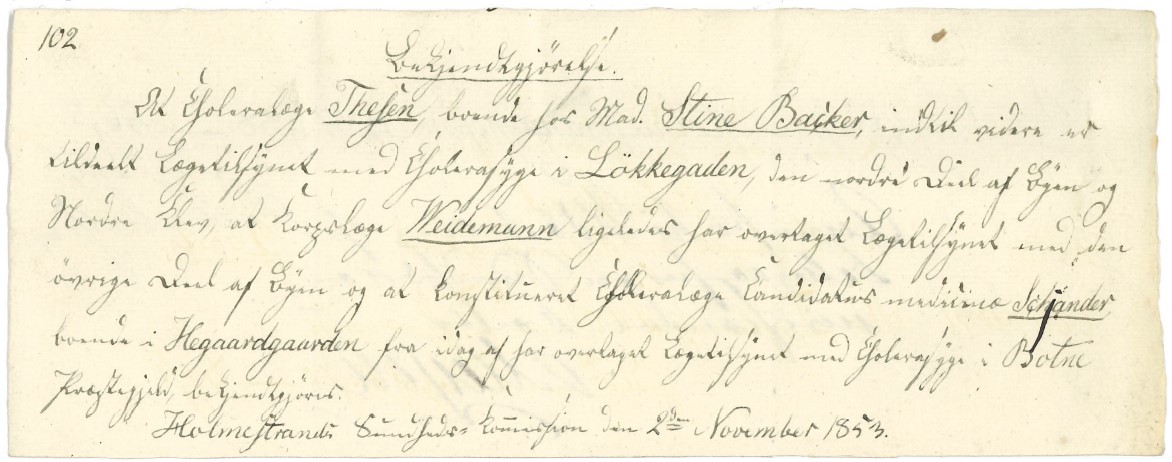 102
Bekjendtgjørelse.
At Choleralæge Thesen, boende hos Mad. Stine Backer, indtil videre er
tildeelt Lægetilsynet med Cholerasyge i Lökkegaden, den nordre Deel af Byen og
Nordre Klev, at Korpslæge Weidemann ligeledes har overtaget Lægetilsynet med den
övrige Deel af Byen og at konstitueret Choleralæge Candidatus medicinæ Schander,
boende i Hegaardgaarden fra idag af har overtaget Lægetilsynet med Cholerasyge i Botne
Præstegjeld, bekjendtgjøres.
Holmestrands Sundheds-Kommission den 2den November 1853.